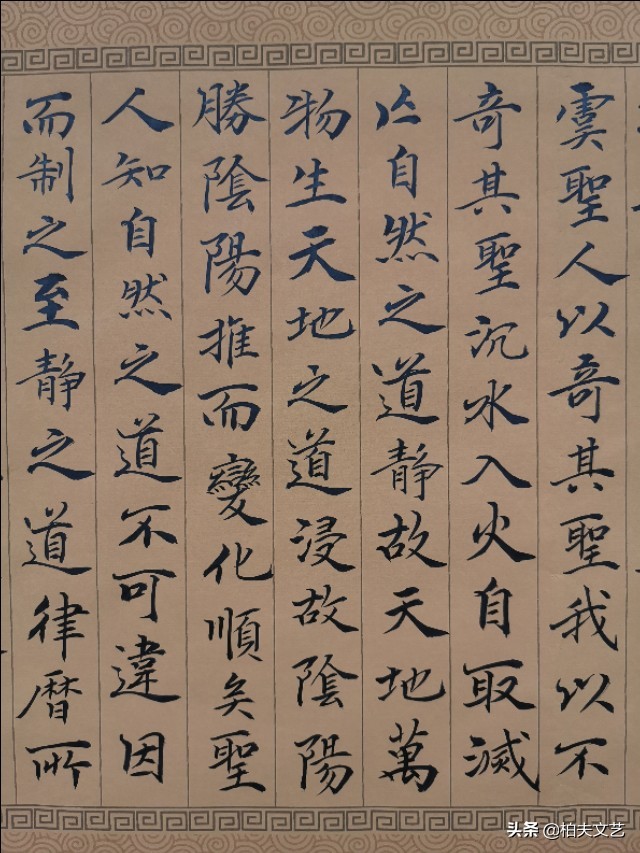 虞聖人以奇其聖我以不
奇其聖沉水入火自取滅
亡自然之道靜故天地萬
物生天地之道浸故陰陽
勝陰陽推而變化順矣聖
人知自然之道不可違因
而制之至靜之道律曆所
头条 @柏夫文艺